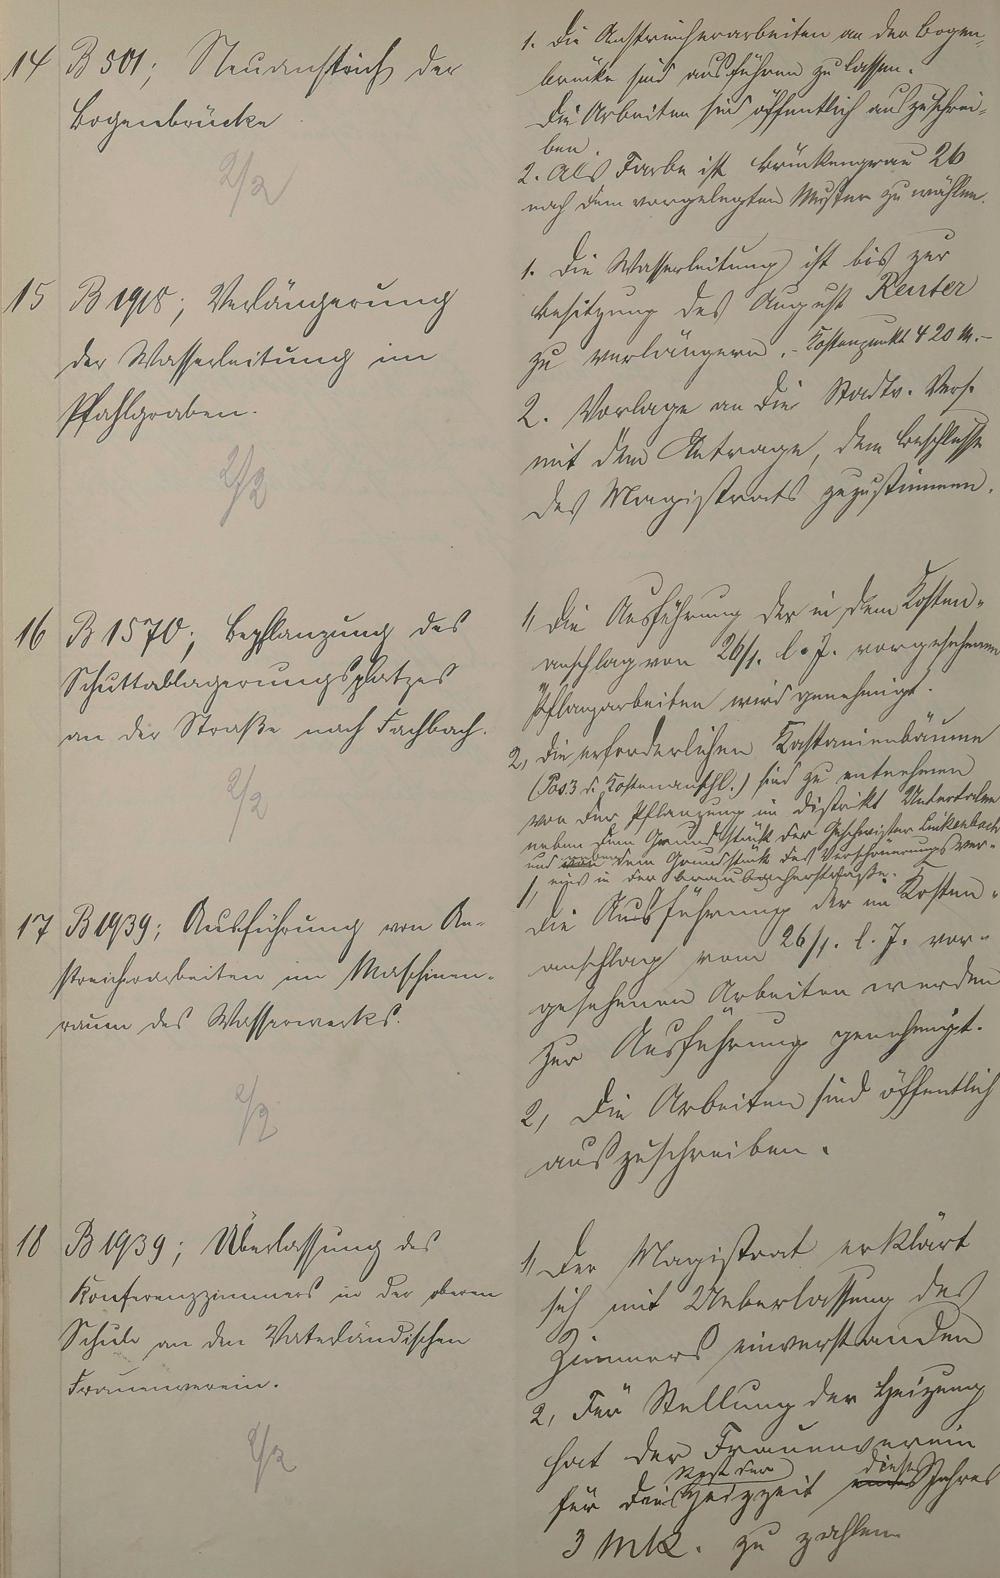 14 B 501; Neuanstrich der
Bogenbrücke
2/2
1. Die Anstreicherarbeiten an der Bogen-
brücke sind ausführen zu lassen.
Die Arbeiten sind öffentlich auszuschrei-
ben.
2. Als Farbe ist Brückengrau 26
nach dem vorgelegten Muster zu wählen.
15 B 1918; Verlängerung
der Wasserleitung im
Pfahlgraben.
2/2
1. Die Wasserleitung ist bis zur
Besitzung des August Reuter
zu verlängern. - Kostenpunkt 420 M. -
2. Vorlage an die Stadtv. Vers.
mit dem Antrage, dem Beschlusse
des Magistrats zuzustimmen.
16 B 1570; Bepflanzung des
Schuttablagerungsplatzes
an der Straße nach Fachbach.
2/2
1, Die Ausführung der in dem Kosten-
anschlag von 26/1. l. J. vorgesehenen
Pflanzarbeiten wird genehmigt.
2, die erforderlichen Kastanienbäume
(Pos. 3 d. Kostenanschl.) sind zu entnehmen
von der Pflanzung im Distrikt
neben dem Grundstück der Geschwister Linkenbach
und neben dem Grundstück des Verschönerungsver-
eins in der Braubacherstraße.
17 B 1939; Ausführung von An-
streicherarbeiten im Maschinen-
raum des Wasserwerks.
2/2
1,
Die Ausführung der im Kosten-
anschlag vom 26/1. l. J. vor-
gesehenen Arbeiten werden
zur Ausführung genehmigt.
2, Die Arbeiten sind öffentlich
auszuschreiben.
18 B 1939; Überlassung des
Konferenzzimmers in der oberen
Schule an den Vaterländischen
Frauenverein.
2/2
1, Der Magistrat erklärt
sich mit Ueberlassung des
Zimmers einverstanden
2, Für Stellung der Heizung
hat der Frauenverein
für die Rest der Heizzeit dieses Jahres
3 Mk. zu zahlen